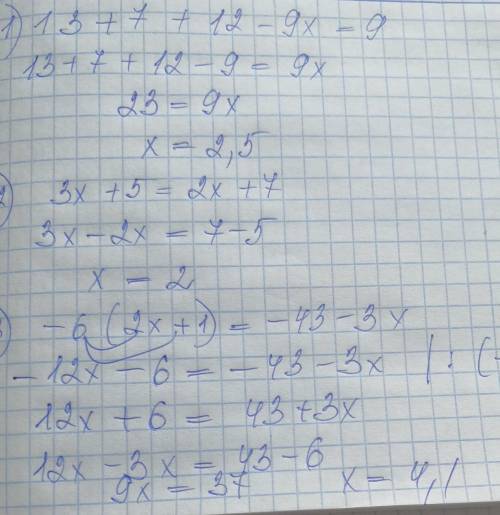 1) 13 + 7 + 12 - 9x = 9
13 + 7 + 12 - 9 = 9x
23 = 9x
x = 2,5
2) 3x + 5 = 2x + 7
3x - 2x = 7 - 5
x = 2
-6 (2x + 1) = -43 - 3x
-12x - 6 = -43 - 3x | : (-
12x + 6 = 43 + 3x
12x - 3x = 43 - 6
9x = 37 x = 4,1